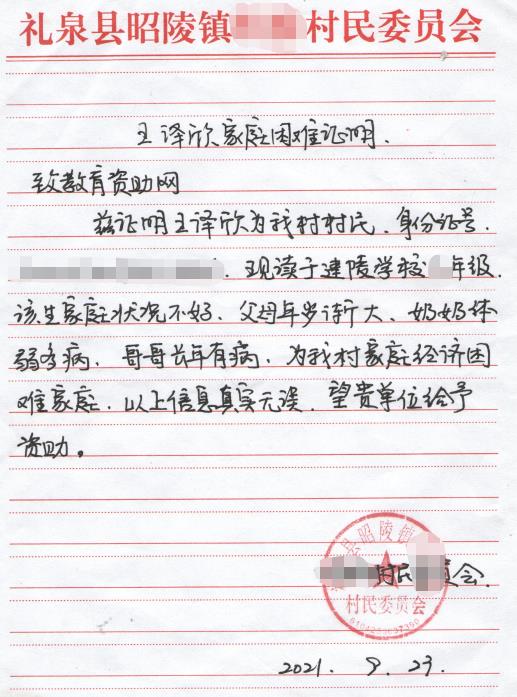 礼泉县昭陵镇 村民委员会
王泽欣家庭困难证明.
致教育资助网
兹证明王泽欣为我村村民、身份证号.
、现读于建陵学校 年级.
该生家庭状况不好、父母年岁渐大、奶奶体
弱多病、哥哥长年有病、为我村家庭经济困
难家庭、以上信息真实无误、望贵单位给予
资助。
县昭陵镇
村民 员会.
村民委员会
2021. 9. 23